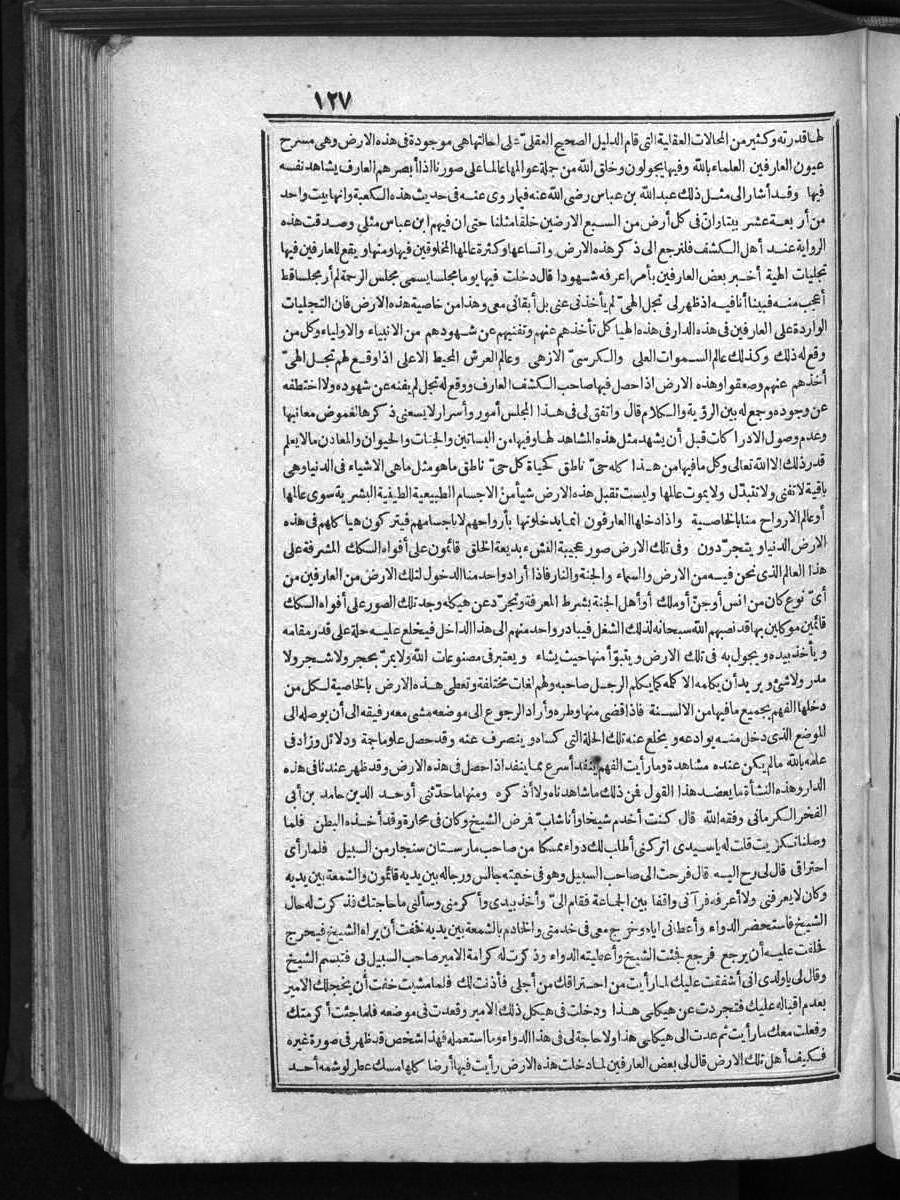 ١٢٧
لها قدرته وكثير من المحالات العقلية التى قام الدليل الصحيح العقلىّ على احالتها هى موجودة فى هذه الارض وهى مسرح
عيون العارفين العلماء بالله وفيها يجولون وخلق الله من جملة عوالمها عالما على صورنا اذا أبصرهم العارف يشاهد نفسه
فيها وقد أشار الى مثل ذلك عبد الله بن عباس رضى الله عنه فيما روى عنه فى حديث هذه الكعبة وانها بيت واحد
من أربعة عشر بيتا وانّ فى كل أرض من السبع الارضين خلقا مثلنا حتى ان فيهم ابن عباس مثلى وصدقت هذه
الرواية عند أهل الكشف فلنرجع الى ذكر هذه الارض واتساعها وكثرة عالمها المخلوقين فيها ومنها ويقع للعارفين فيها
تجليات الهية أخبر بعض العارفين بأمر اعرفه شهودا قال دخلت فيها يوما مجلسا يسمى مجلس الرحمة لم أر مجلسا قط
أعجب منه فبينا أنا فيه اذ ظهر لى تجل الهىّ لم يأخذنى عنى بل أبقانى معى وهذا من خاصية هذه الارض فان التجليات
الواردة على العارفين فى هذه الدار فى هذه الهياكل تأخذهم عنهم وتفنيهم عن شهودهم من الانبياء والاولياء وكل من
وقع له ذلك وكذلك عالم السموات العلى والكرسىّ الازهى وعالم العرش المحيط الاعلى اذا وقع لهم تجل الهىّ
أخذهم عنهم وصعقوا وهذه الارض اذا حصل فيها صاحب الكشف العارف ووقع له تجل لم يفنه عن شهوده ولا اختطفه
عن وجوده وجمع له بين الرؤية والكلام قال واتفق لى فى هذا المجلس أمور وأسرار لا يسعنى ذكرها لغموض معانيها
وعدم وصول الادراكات قبل أن يشهد مثل هذه المشاهد لها وفيها من البساتين والجنات والحيوان والمعادن ما لا يعلم
قدر ذلك الا الله تعالى وكل ما فيها من هذا كله حىّ ناطق كحياة كل حىّ ناطق ما هو مثل ما هى الاشياء فى الدنيا وهى
باقية لا تفنى ولا تتبدّل ولا يموت عالمها وليست تقبل هذه الارض شيأ من الاجسام الطبيعية الطينية البشرية سوى عالمها
أو عالم الارواح منا بالخاصية واذا دخلها العارفون انما يدخلونها بأرواحهم لا بأجسامهم فيتركون هياكلهم فى هذه
الارض الدنيا ويتجرّدون وفى تلك الارض صور عجيبة النشء بديعة الخلق قائمون على أفواه السكك المشرفة على
هذا العالم الذى نحن فيه من الارض والسماء والجنة والنار فاذا أراد واحد منا الدخول لتلك الارض من العارفين من
أىّ نوع كان من انس أو جنّ أو ملك أو أهل الجنة بشرط المعرفة وتجرّد عن هيكله وجد تلك الصور على أفواه السكك
قائمين موكلين بها قد نصبهم الله سبحانه لذلك الشغل فيبادر واحد منهم الى هذا الداخل فيخلع عليه حلة على قدر مقامه
ويأخذ بيده ويجول به فى تلك الارض ويتبوّأ منها حيث يشاء ويعتبر فى مصنوعات الله ولا يمرّ بحجر ولا شجر ولا
مدر ولا شئ ويريد أن يكلمه الا كلمه كما يكلم الرجل صاحبه ولهم لغات مختلفة وتعطى هذه الارض بالخاصية لكل من
دخلها الفهم بجميع ما فيها من الالسنة فاذا قضى منها وطره وأراد الرجوع الى موضعه مشى معه رفيقه الى أن يوصله الى
الموضع الذى دخل منه يوادعه ويخلع عنه تلك الحلة التى كساه وينصرف عنه وقد حصل علوما جمة ودلائل وزاد فى
علمه بالله ما لم يكن عنده مشاهدة وما رأيت الفهم ينفذ أسرع مما ينفذ اذا حصل فى هذه الارض وقد ظهر عندنا فى هذه
الدار وهذه النشأة ما يعضد هذا القول فمن ذلك ما شاهدناه ولا أذكره ومنها ما حدّثنى أوحد الدين حامد بن أبى
الفخر الكرمانى وفقه الله قال كنت أخدم شيخا وأنا شاب فرض الشيخ وكان فى محارة وقد أخذه البطن فلما
وصلنا تكريت قلت له يا سيدى اتركنى أطلب لك دواء ممسكا من صاحب مارستان سنجار من السبيل فلما رأى
احتراقى قال لى رح اليه قال فرحت الى صاحب السبيل وهو فى خيمته جالس ورجاله بين يديه قائمون والشمعة بين يديه
وكان لا يعرفنى ولا أعرفه فرآنى واقفا بين الجماعة فقام الىّ وأخذ بيدى وأكرمنى وسألنى ما حاجتك فذكرت له حال
الشيخ فاستحضر الدواء وأعطانى اياه وخرج معى فى خدمتى والخادم بالشمعة بين يديه فخفت أن يراه الشيخ فيحرج
فحلفت عليه أن يرجع فرجع فجئت الشيخ وأعطيته الدواء وذكرت له كرامة الامير صاحب السبيل فى فتبسم الشيخ
وقال لى يا ولدى انى أشفقت عليك لما رأيت من احتراقك من أجلى فأذنت لك فلما مشيت خفت أن يخجلك الامير
بعدم اقباله عليك فتجردت عن هيكلى هذا ودخلت فى هيكل ذلك الامير وقعدت فى موضعه فلما جئت أكرمتك
وفعلت معك ما رأيت ثم عدت الى هيكلى هذا ولا حاجة لى فى هذا الدواء وما استعمله فهذا شخص قد ظهر فى صورة غيره
فكيف أهل تلك الارض قال لى بعض العارفين لما دخلت هذه الارض رأيت فيها أرضا كلها مسك عطر لو شمه أحد